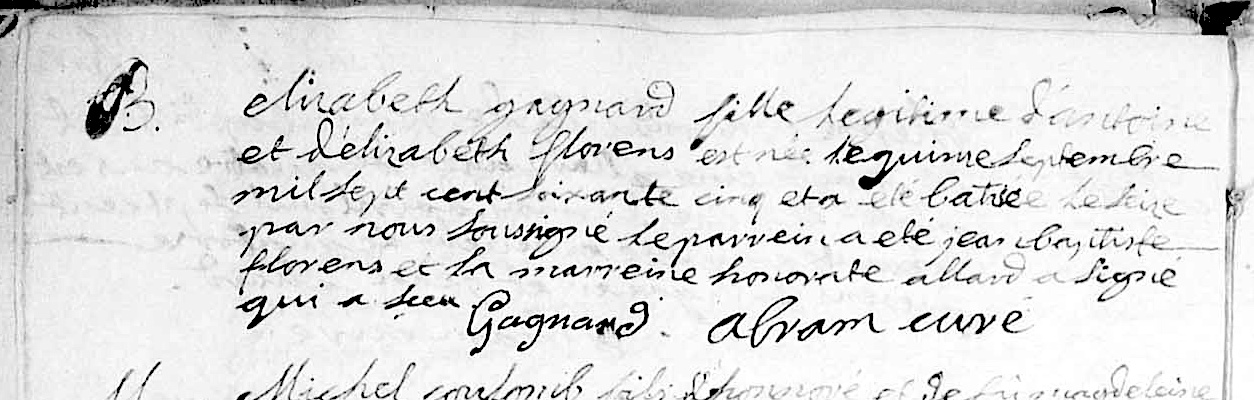 B. elizabeth gagnard fille legitime d'antoine
et d'élizabeth florens est née le quinze septembre
mil sept cent soixante cinq et a eté batisée le seize
par nous soussigné le parrein a eté jean baptiste
florens et la marreine honorate allard a signé
qui a sceu Gagnard. Abram curé
Michel coulomb fils d'honnoré et de magdeleine